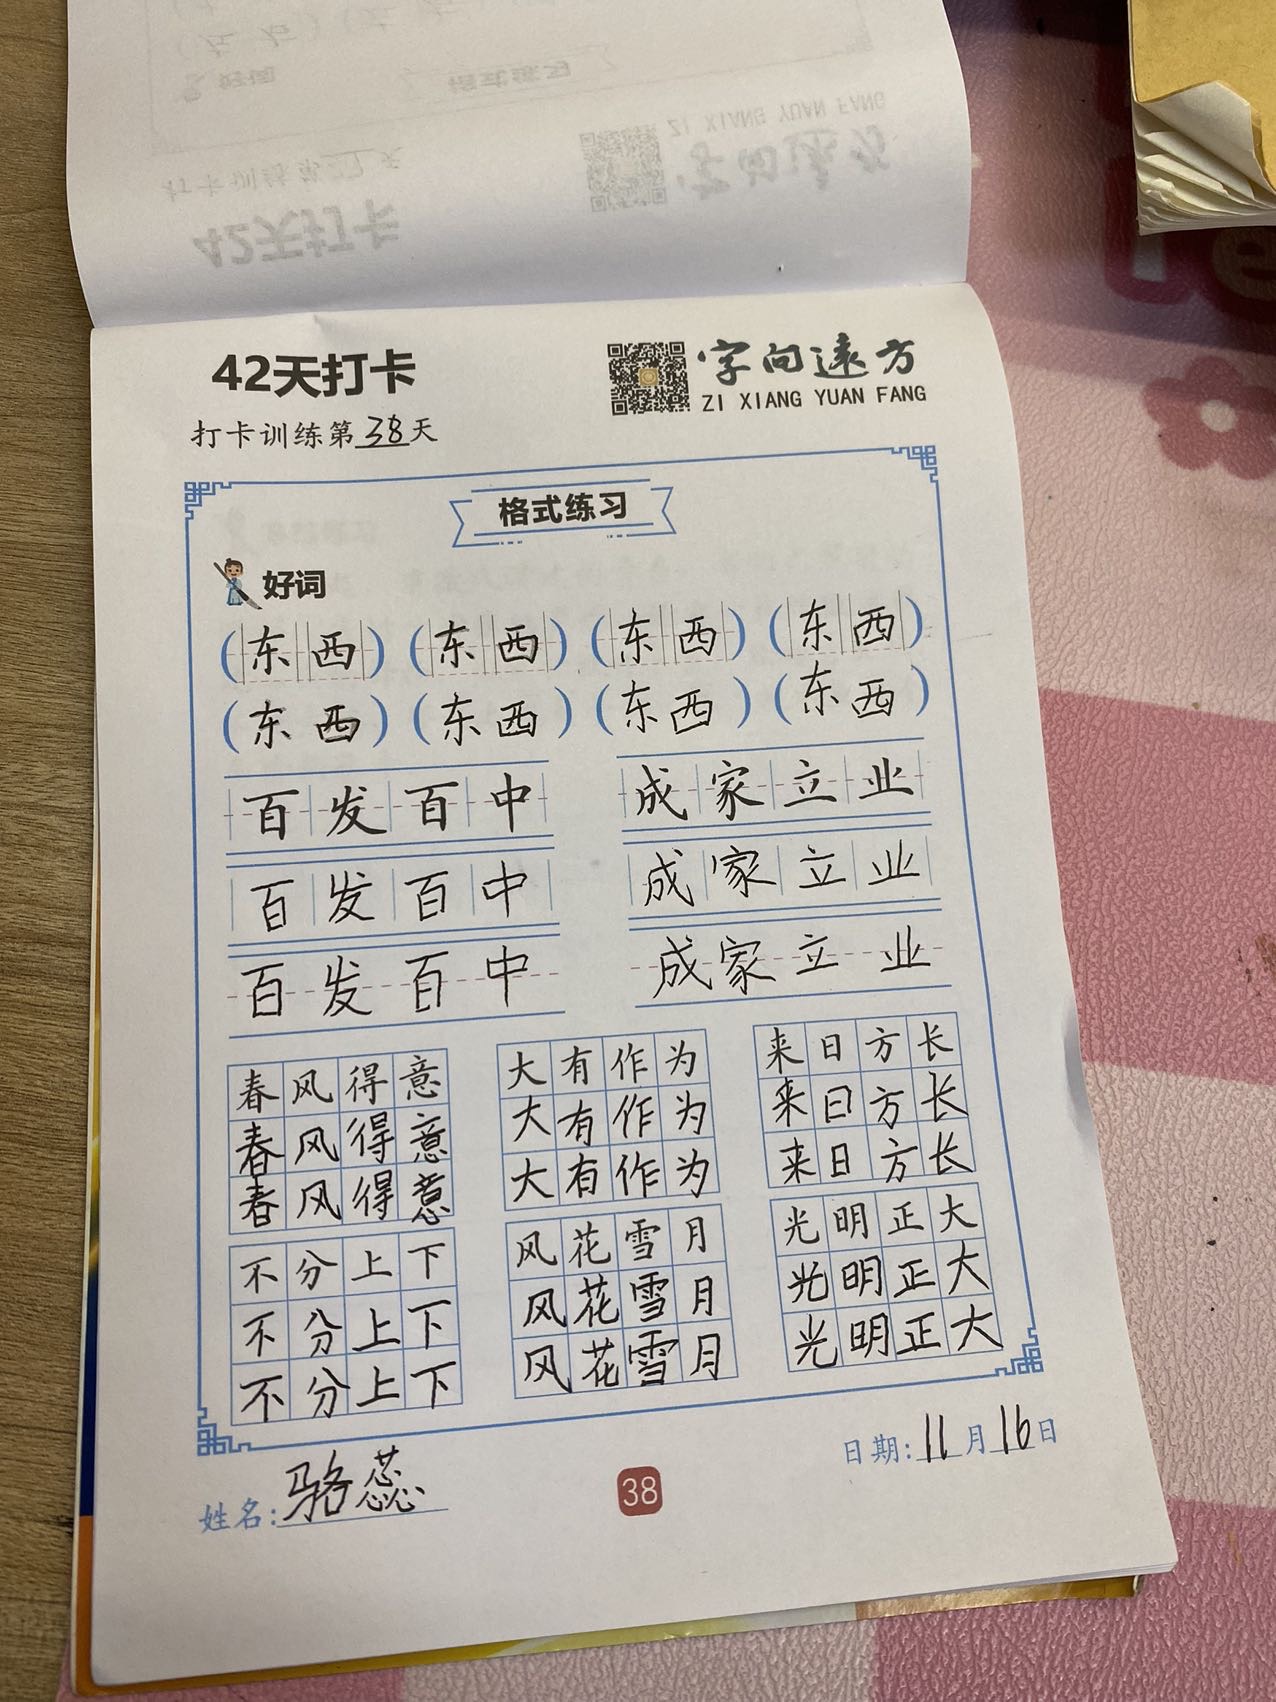 42天打卡
字向远方
ZI XIANG YUAN FANG
打卡训练第38天
格式练习
好词
(东西) (东西) (东西) (东西)
(东西) (东西) (东西) (东西)
百发百中 成家立业
百发百中 成家立业
百发百中 成家立业
春风得意 大有作为 来日方长
春风得意 大有作为 来日方长
春风得意 大有作为 来日方长
不分上下 风花雪月 光明正大
不分上下 风花雪月 光明正大
不分上下 风花雪月 光明正大
日期:11月16日
姓名:骆蕊
38